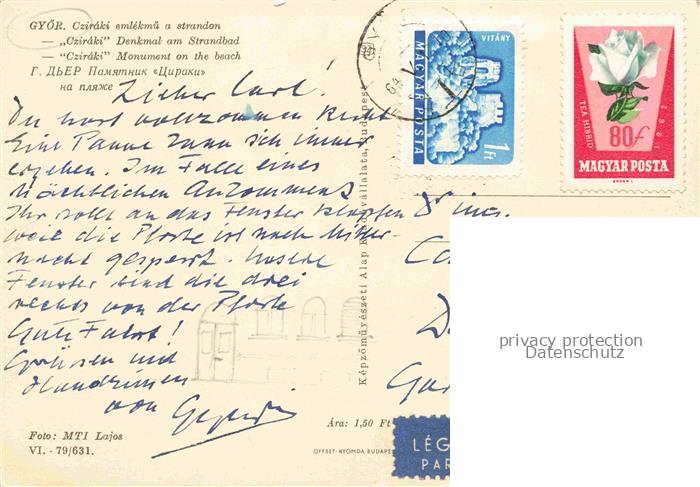 GYŐR. Cziráki emlékmű a strandon
— „Cziráki" Denkmal am Strandbad
— "Cziráki" Monument on the beach
Г. ДЬЕР Памятник «Цираки»
на пляже
Lieber Carl!
Du hast vollkommen Recht
Eine Panne kann sich immer
ergeben. Im Falle eines
nächtlichen Ankommens
Ihr sollt an das Fenster klopfen
weil die Pforte ist nach Mitter-
nacht gesperrt. Unsere
Fenster sind die drei
rechts von der Pforte
Gute Fahrt!
Grüssen und
Handküssen
von
Foto: MTI Lajos
VI. - 79/631.
Ára: 1,50 Ft
OFFSET-NYOMDA, BUDAPEST
Képzőművészeti Alap Kiadóvállalata, Budapest
VITÁNY
MAGYAR POSTA
1 Ft
TEA HIBRID
1962
80f
MAGYAR POSTA
LÉG
PAR
privacy protection
Datenschutz